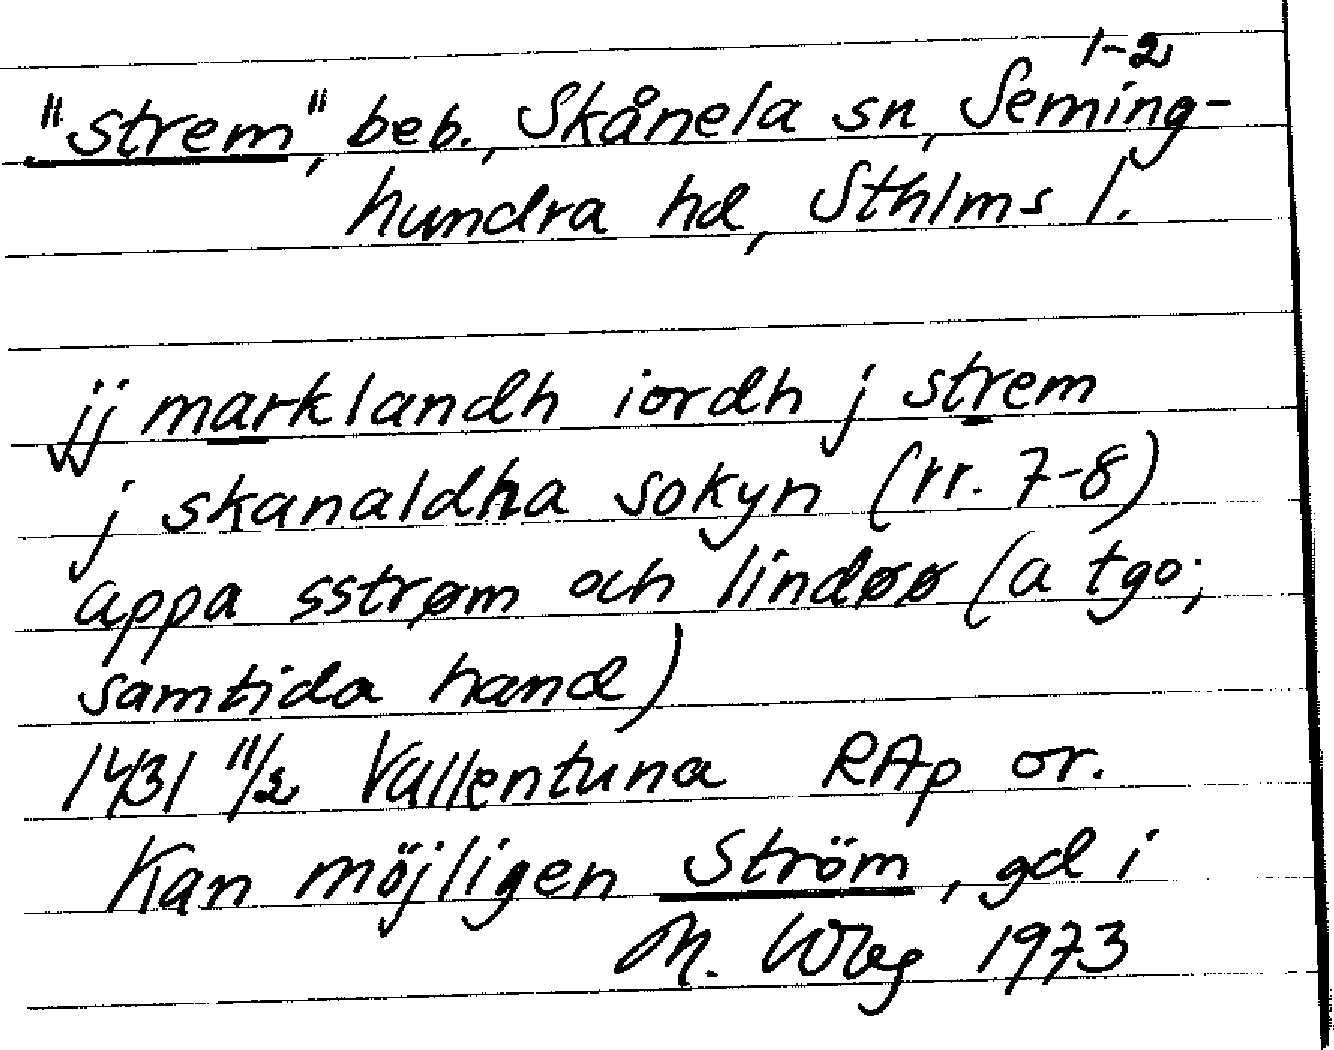 1-2
"strem", beb., Skånela sn, Seming-
hundra hd, Sthlms l.
jj marklandh iordh j strem
j skanaldha sokyn (rr. 7-8)
appa sstrøm och lindøø (a tgo;
samtida hand)
1431 11/2 Vallentuna RAp or.
Kan möjligen Ström, gd i
M. Wbg 1973